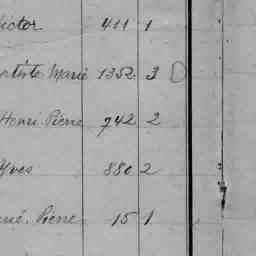 Victor 411 1
Marie 1352 3 D
Henri Pierre 742 2
Yves 880 2
Pierre 15 1